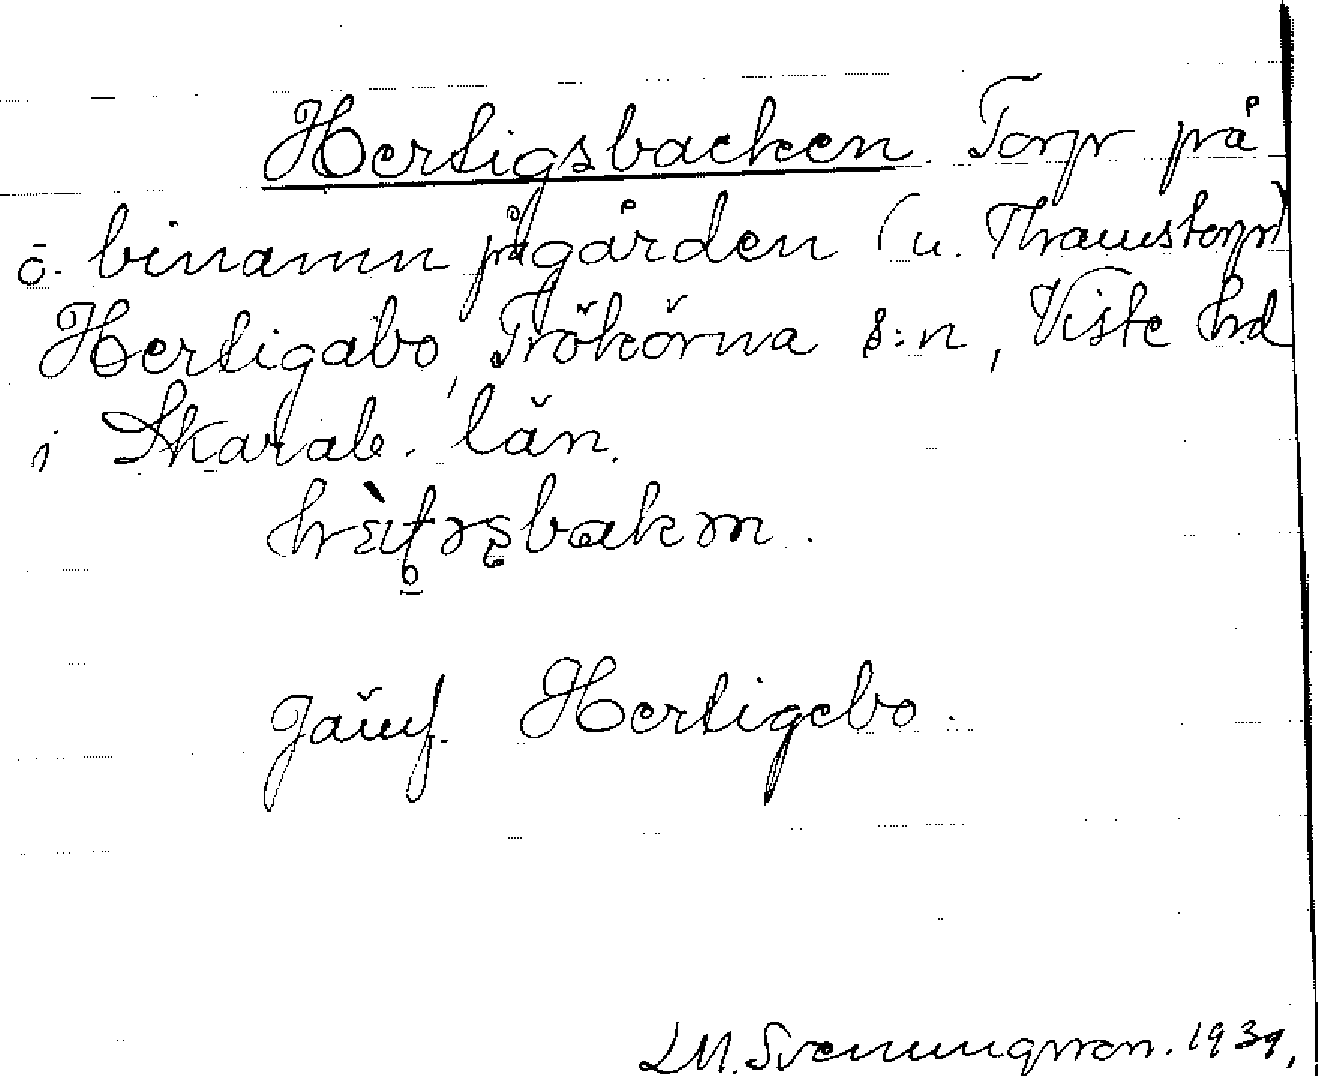 Hertigsbacken. Torp på
o. binamn på gården (u. Thamstorp)
Hertigabo, Trökörna s:n, Viste hd
i Skarab. län.
Jämf. Hertigebo.
L.M. Svenungsson. 1939.